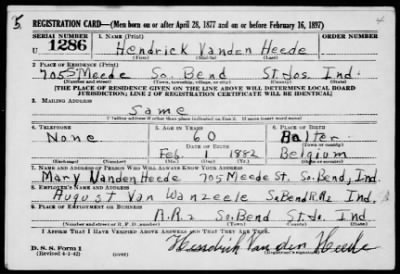 5. 4
REGISTRATION CARD—(Men born on or after April 28, 1877 and on or before February 16, 1897)
SERIAL NUMBER 1. NAME (Print) ORDER NUMBER
U 1286 Hendrick Vanden Heede
(First) (Middle) (Last)
2. PLACE OF RESIDENCE (Print)
705 Meede So. Bend St. Jos. Ind.
(Number and street) (Town, township, village, or city) (County) (State)
[THE PLACE OF RESIDENCE GIVEN ON THE LINE ABOVE WILL DETERMINE LOCAL BOARD
JURISDICTION; LINE 2 OF REGISTRATION CERTIFICATE WILL BE IDENTICAL]
3. MAILING ADDRESS
Same
[Mailing address if other than place indicated on line 2. If same insert word same]
4. TELEPHONE 5. AGE IN YEARS 6. PLACE OF BIRTH
None 60
DATE OF BIRTH (Town or county)
Feb. 1 1882 Belgium
(Exchange) (Number) (Mo.) (Day) (Yr.) (State or country)
7. NAME AND ADDRESS OF PERSON WHO WILL ALWAYS KNOW YOUR ADDRESS
Mary Vanden Heede 705 Meede St. So. Bend, Ind.
8. EMPLOYER'S NAME AND ADDRESS
August Van Wanzeele So Bend R.R.2 Ind.
9. PLACE OF EMPLOYMENT OR BUSINESS
R.R.2 So. Bend St. Jo. Ind.
(Number and street or R. F. D. number) (Town) (County) (State)
I AFFIRM THAT I HAVE VERIFIED ABOVE ANSWERS AND THAT THEY ARE TRUE.
D. S. S. Form 1
(Revised 4-1-42) (over) Hendrick Van den Heede